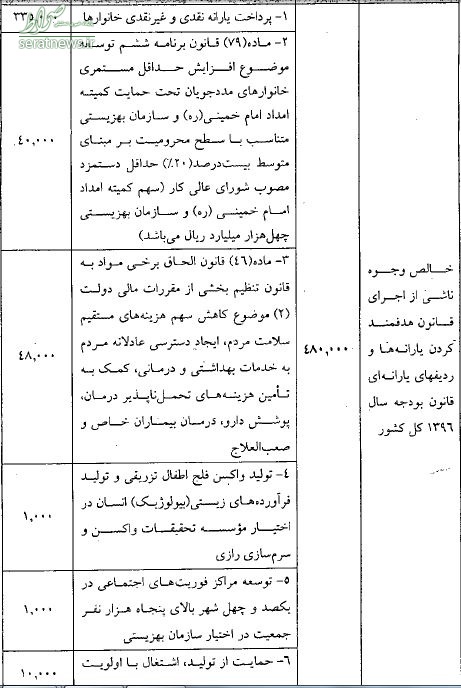 ۱- پرداخت یارانه نقدی و غیرنقدی خانوارها
seratnews.ir
۲- ماده(۷۹) قانون برنامه ششم توسعه
موضوع افزایش حداقل مستمری
خانوارهای مددجویان تحت حمایت کمیته
امداد امام خمینی(ره) و سازمان بهزیستی
متناسب با سطح محرومیت بر مبنای
متوسط بیست‌درصد(۲۰٪) حداقل دستمزد
مصوب شورای عالی کار (سهم کمیته امداد
امام خمینی (ره) و سازمان بهزیستی
چهل‌هزار میلیارد ریال می‌باشد)
۴۰,۰۰۰
خالص وجوه
ناشی از اجرای
قانون هدفمند
کردن یارانه‌ها و
ردیفهای یارانه‌ای
قانون بودجه سال
۱۳۹۶ کل کشور
۴۸۰,۰۰۰
۳- ماده(۴۶) قانون الحاق برخی مواد به
قانون تنظیم بخشی از مقررات مالی دولت
(۲) موضوع کاهش سهم هزینه‌های مستقیم
سلامت مردم، ایجاد دسترسی عادلانه مردم
به خدمات بهداشتی و درمانی، کمک به
تأمین هزینه‌های تحمل‌ناپذیر درمان،
پوشش دارو، درمان بیماران خاص و
صعب‌العلاج
۴۸,۰۰۰
۴- تولید واکسن فلج اطفال تزریقی و تولید
فرآورده‌های زیستی(بیولوژیک) انسان در
اختیار مؤسسه تحقیقات واکسن و
سرم‌سازی رازی
۱,۰۰۰
۵- توسعه مراکز فوریت‌های اجتماعی در
یکصد و چهل شهر بالای پنجاه هزار نفر
جمعیت در اختیار سازمان بهزیستی
۱,۰۰۰
۶- حمایت از تولید، اشتغال با اولویت
۱۰,۰۰۰